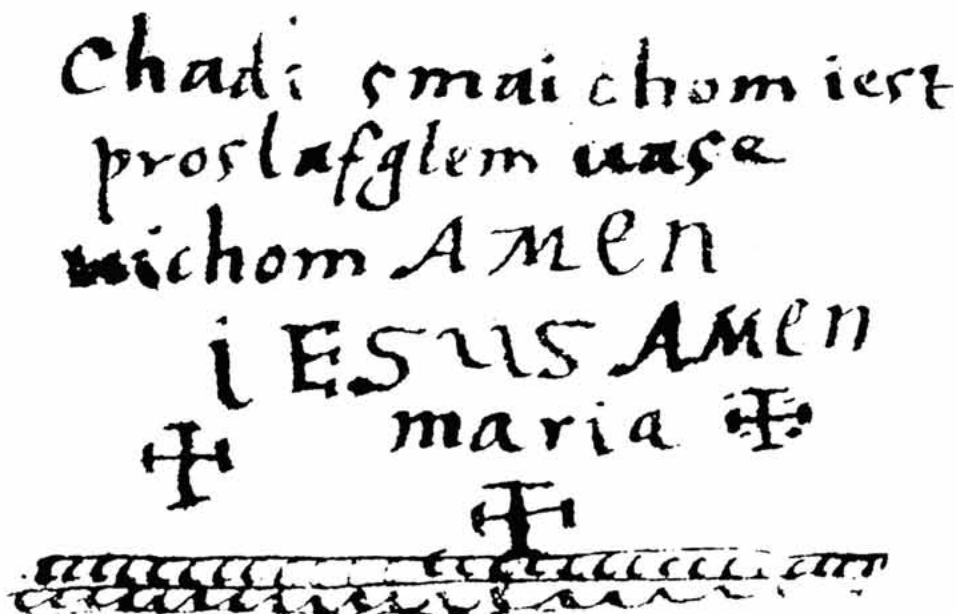 Chadi smaichom iest
proslafglem uase
uichom AMEN
iESUS AMEN
maria